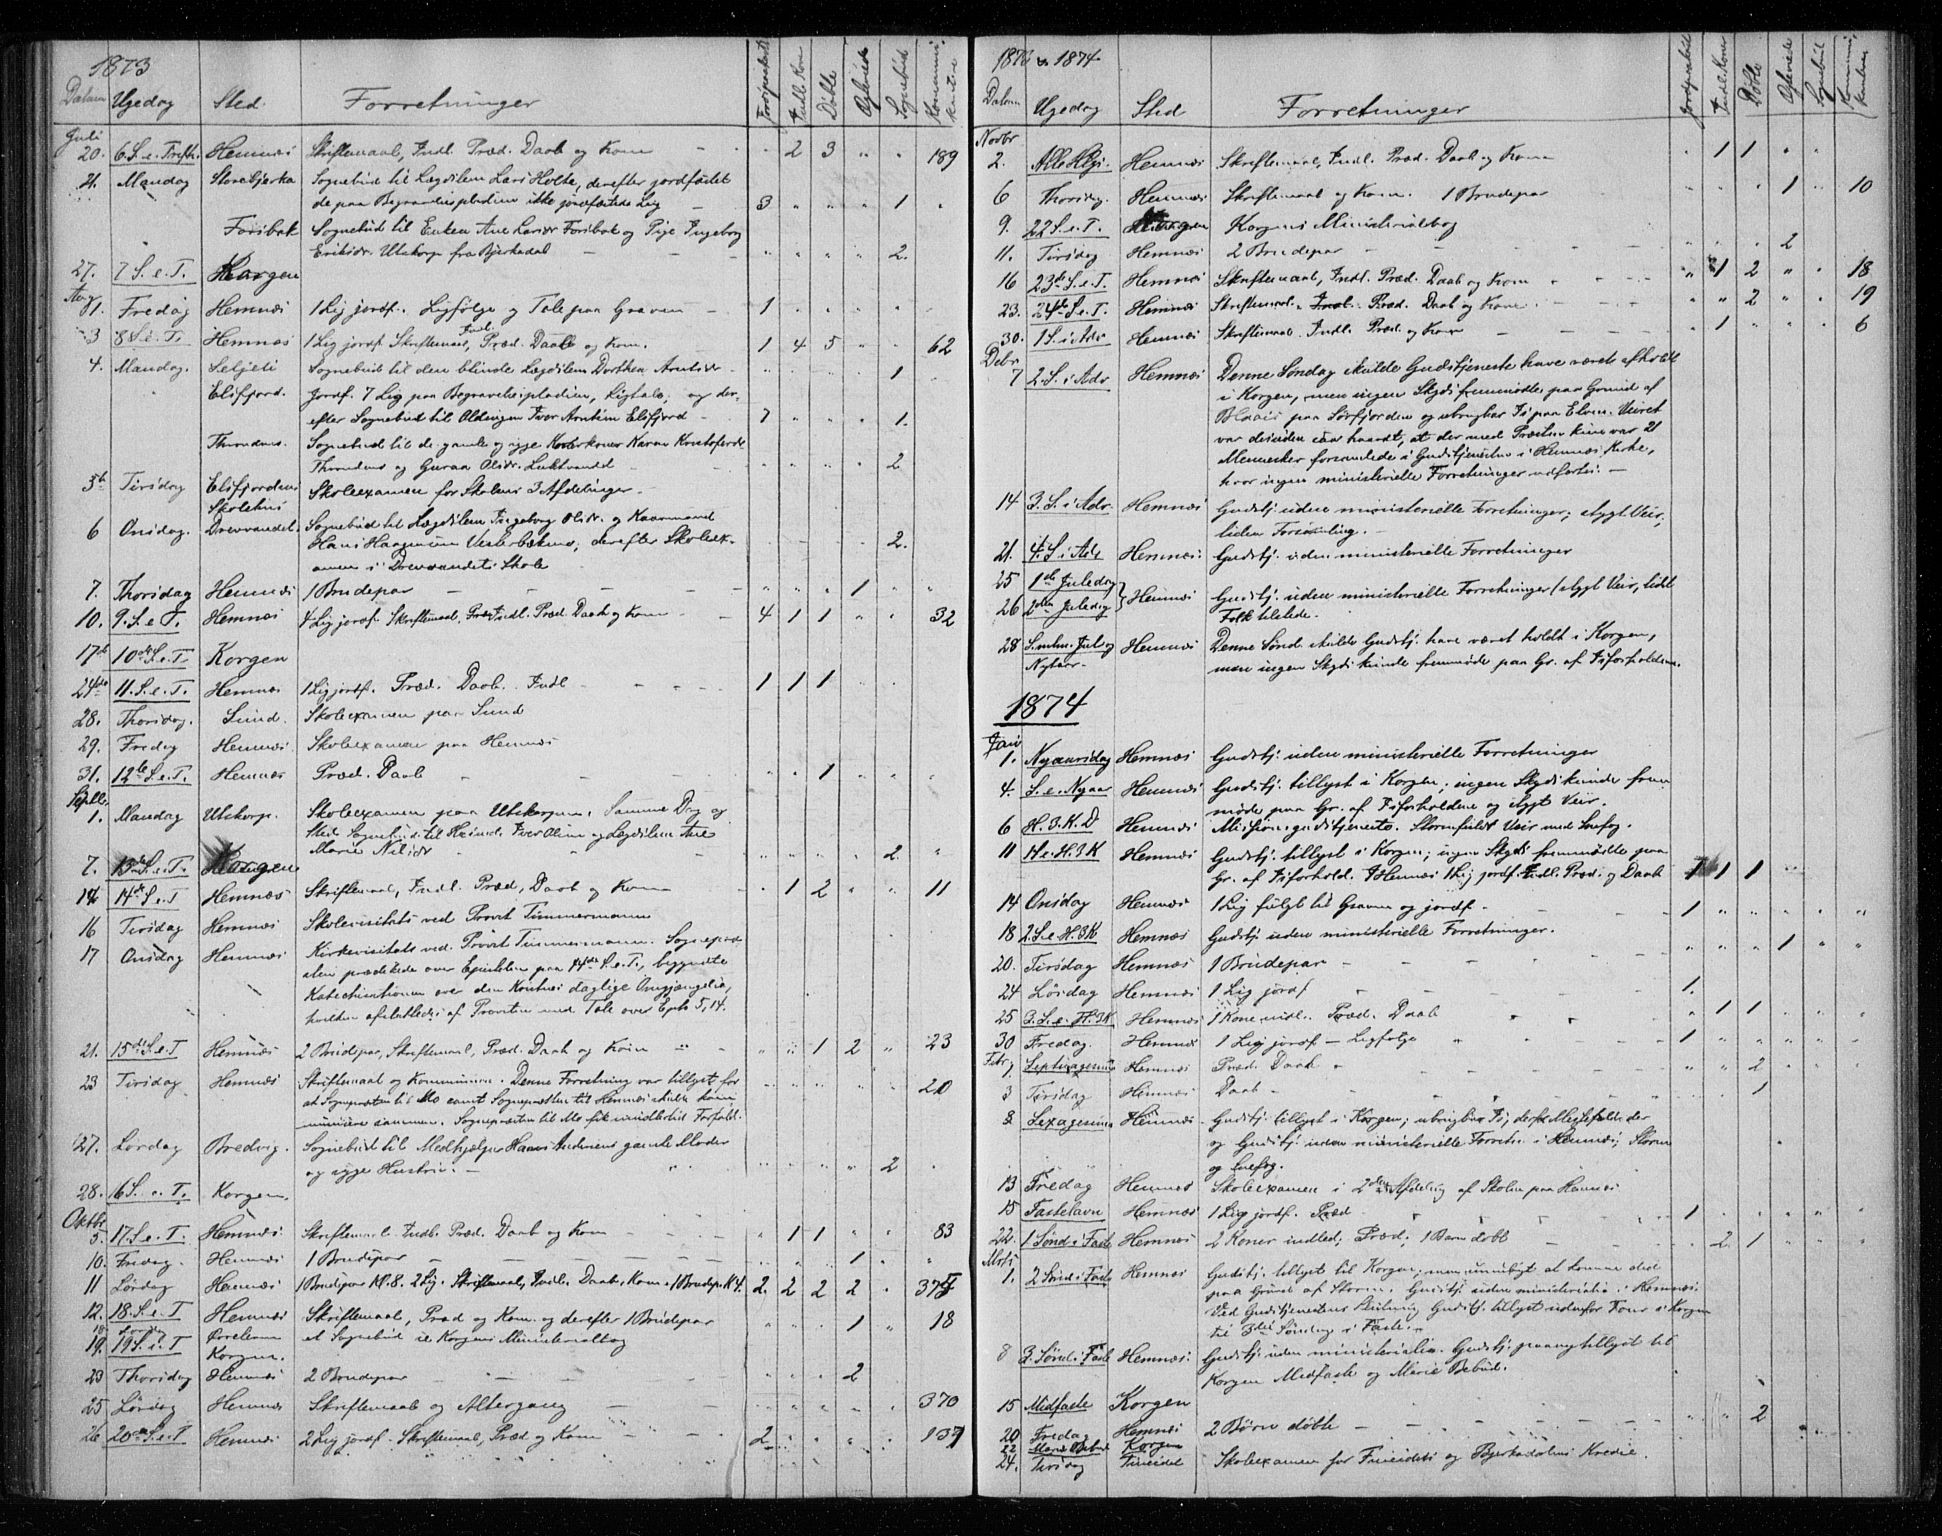 1873
Datum Ugedag Sted. Forretninger Jordpaakast. Indl. Kone Döbte Ægtevied Sognebud Kommunikantere
Juli
20. 6. S. e. Trefth. Hemnæs Skriftemaal, Indl. Præd. Daab og Kom 2 3 189
21. Mandag Storebjerka Sognebud til Lægdslem Lars Holte, derefter jordfæstet
de paa Begravelsespladsen ikke jordfæstede Lig 3 1
Forsbak Sognebud til Enken Ane Larsdr Forsbak og Pige Ingeborg
Eriksdr. Utskorpe fra Bjerkadal 2.
27. 7 S. e. T. Korgen
Aug
1. Fredag Hemnæs 1 Lig jordf. Ligfølge og Tale paa Graven 1
3 8 S. e. T. Hemnæs 1 Lig jordf. Skriftemaal, Indl. Præd. Daab og Kom. 1 4 5 62
4. Mandag. Sognebud til den blinde Lægdslem Dorthea Arntsdr 1
Elsfjord. Jordf. 7 Lig paa Begravelsespladsen, Ligtale, og der-
efter Sognebud til Oldingen Iver Arntsen Elsfjord 7 1.
Throndnes. Sognebud til de gamle og syge Karen Kristofersdr
Throndnes og Guraa Olsdr. Luktvandet 2
5te Tirsdag Elsfjordens Skolehus Skoleexamen for Skolens 3 Afdelinger
6 Onsdag. Drevvandet. Sognebud til Lægdslem Ingeborg Olsdr. og Kaarmand
Hans Haagensen Vesterbæknes, derefter Skoleex- 2.
amen i Drevvandets Skole
7. Thorsdag Hemnæs 1 Brudepar 1
10. 9. S. e. T. Hemnæs 4 Lig jordf. Skriftemaal. Indl. Præd. Daab og Kom 4 1 1 32
17de 10de S. e. T. Korgen
24de 11. S. e. T. Hemnæs 1 Lig jordf. Præd. Daab. Indl 1 1 1
28. Thorsdag. Sund. Skoleexamen paa Sund
29. Fredag Hemnæs. Skoleexamen paa Hemnæs
31. 12te S. e. T. Hemnæs Præd. Daab 1
Septbr.
1. Mandag Utskorpe. Skoleexamen paa Utskorpen. Samme Dag og
Sted Sognebud til Iver Olsen og Lægdslem Ane
Marie Nilsdr 2.
7. 13de S. e. T. Korgen
14 14de S. e. T Hemnæs Skriftemaal, Indl. Præd, Daab og Kom 1 2 11
16 Tirsdag Hemnæs Skolevisitats ved Provst Timmermann
17 Onsdag Hemnæs Kirkevisitats ved Provst Timmermann. Sognepræ-
sten prædikede over Epistelen paa 14de S. e. T., begyndte
Katechisationen over den Kristnes daglige Omgjængelse,
hvilken afsluttedes af Provsten med Tale over Eph 5, 14.
21. 15de S. e. T Hemnæs 2 Brudepar, Skriftemaal, Præd. Daab og Kom 1 2 23
23 Tirsdag Hemnæs Skriftemaal og Kommunion. Denne Forretning var tillyst for
at Sognepræsten til Mo samt Sognepræsten til Hemnæs skulde kom-
munisere sammen. Sognepræsten til Mo fik imidlertid Forfald. 20
27. Lördag Bredvig. Sognebud til Medhjælper Hans Andersens gamle Moder
og syge Hustru. 2
28. 16 S. e. T. Korgen.
Oktbr
5. 17. S. e. T. Hemnæs. Skriftemaal. Indl. Præd. Daab og Kom 1 1 83
10. Fredag. Hemnæs 1 Brudepar 1
11 Lördag Hemnæs 1 Brudepar Kl. 8. 2 Lig. Skriftemaal, Indl. Daab, Kom. 1 Brudep. Kl 4. 2. 2 2 2 375
12. 18. S. e. T Hemnæs Skriftemaal, Præd og Kom. og derefter 1 Brudepar 1 18
18. Lördag
19. 19 S. e. T Korgen. et Sognebud se Korgens Ministerialbog
23 Thorsdag Hemnæs 2 Brudepar 2
25 Lördag Hemnæs Skriftemaal og Altergang 370
26 20de S. e. T Hemnæs 2 Lig jordf. Skriftemaal, Præd og Kom 2 137
1873 1874
Datum Ugedag Sted Forretninger Jordpaakast Indl. Koner Döbte Ægteviede Sognebud Kommunikantere
Novbr
2. Alle Helgs. Hemnæs Skriftemaal, Indl. Præd. Daab og Kom 1 1
6 Thorsdag. Hemnæs Skriftemaal og Kom. 1 Brudepar 1 10
9. 22 S. e. T. Korgen Korgens Ministerialbog
11. Tirsdag Hemnæs 2 Brudepar 2
16 23de S. e. T. Hemnæs Skriftemaal, Indl. Præd. Daab og Kom 1 2 18
23. 24de S. e. T. Hemnæs Skriftemaal. Præd. Daab og Kom 2 19
30. 1 S. i Adv Hemnæs Skriftemaal. Indl. Præd. og Kom 1 6
Debr
7 2. S. i Adv Hemnæs Denne Söndag skulde Gudstjeneste have været afholdt
i Korgen, men ingen Skyds fremmødte paa Grund af
Blaais paa Sörfjorden og ubrugbar Is paa Elven. Veiret
var desuden saa haardt, at der med Præsten kun var 21
Mennesker forsamlede i Gudstjenesten i Hemnæs Kirke,
hvor ingen ministerielle Forretninger udførtes.
14 3. S. i Adv. Hemnæs Gudstj. uden ministerielle Forretninger; stygt Veir,
liden Forsamling.
21. 4. S. i Adv Hemnæs. Gudstj. uden ministerielle Forretninger
25 1ste Juledag
26 2den Juledag } Hemnæs Gudstj. uden ministerielle Forretninger / stygt Veir, lidt
Folk tilstede.
28 S. mlm. Jul og Nytaar Hemnæs Denne Sönd. skulde Gudstj. have været holdt i Korgen,
men ingen Skyds kunde fremmøde paa Gr. af Isforholdene.
1874
Jan
1. Nyaarsdag Hemnæs Gudstj. uden ministerielle Forretninger
4. S. e. Nyaar Hemnæs Gudstj. tillyst i Korgen; ingen Skyds kunde frem-
møde paa Gr. af Isforholdene og stygt Veir.
6 H. 3. K. D Hemnæs Missionsgudstjeneste. Stormfuldt Veir med Snefog.
11 1 S e. H. 3 K Hemnæs Gudstj. tillyst i Korgen; ingen Skyds fremmødte paa
Gr. af Isforhold. I Hemnæs 1 Lig jordf. Indl. Præd. og Daab 1 1 1
14 Onsdag Hemnæs 1 Lig fulgt til Graven og jordf. 1
18 2. S. e. H. 3 K Hemnæs Gudstj. uden ministerielle Forretninger.
20. Tirsdag Hemnæs 1 Brudepar 1
24 Lörsdag Hemnæs 1 Lig jordf 1.
25 3. S. e. H. 3 K Hemnæs 1 Kone indl. Præd. Daab 1 1
30 Fredag. Hemnæs 1 Lig jordf. – Ligfølge 1
Febr
1 Septuagesima Hemnæs Præd. Daab 2
3 Tirsdag Hemnæs Daab 1
8 Sexagesima Hemnæs. Gudstj. tillyst i Korgen; ubrugbar Is; derfor Messefald der
og Gudstj. uden ministerielle Forretn. i Hemnæs; Storm
og Snefog.
13 Fredag Hemnæs Skoleexamen i 2den Afdeling af Skolen paa Hemnæs
15 Fastelavn Hemnæs 1 Lig jordf. Præd 1
22. 1 Sönd i Faste Hemnæs 2 Koner indled; Præd; 1 Barn döbt 2. 1
Marts
1. 2 Sönd. i Faste Hemnæs Gudstj. tillyst til Korgen; men umuligt at komme did
paa Grund af Storm. Gudstj. uden ministerialia i Hemnæs.
Ved Gudstjenestens Slutning Gudstj. tillyst udenfor Tour i Korgen
til 3die Söndag i Faste.
8 3. Sönd. i Faste Hemnæs. Gudstj. uden ministerialia. Gudstj. paany tillyst til
Korgen Midfaste og Mariæ Bebud.
15 Midfaste Korgen
20 Fredag Hemnæs 2 Börn döbte 2
22 Mariæ Bebud Korgen
24. Tirsdag Fineidet Skoleexamen for Fineidets og Bjerkadalens Kredse.